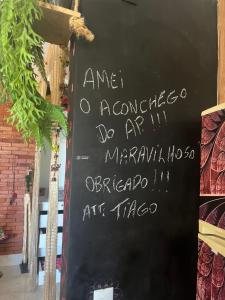 AMEI
O ACONCHEGO
DO AP. !!!
MARAVILHOSO
OBRIGADO !!!
ATT. TIAGO